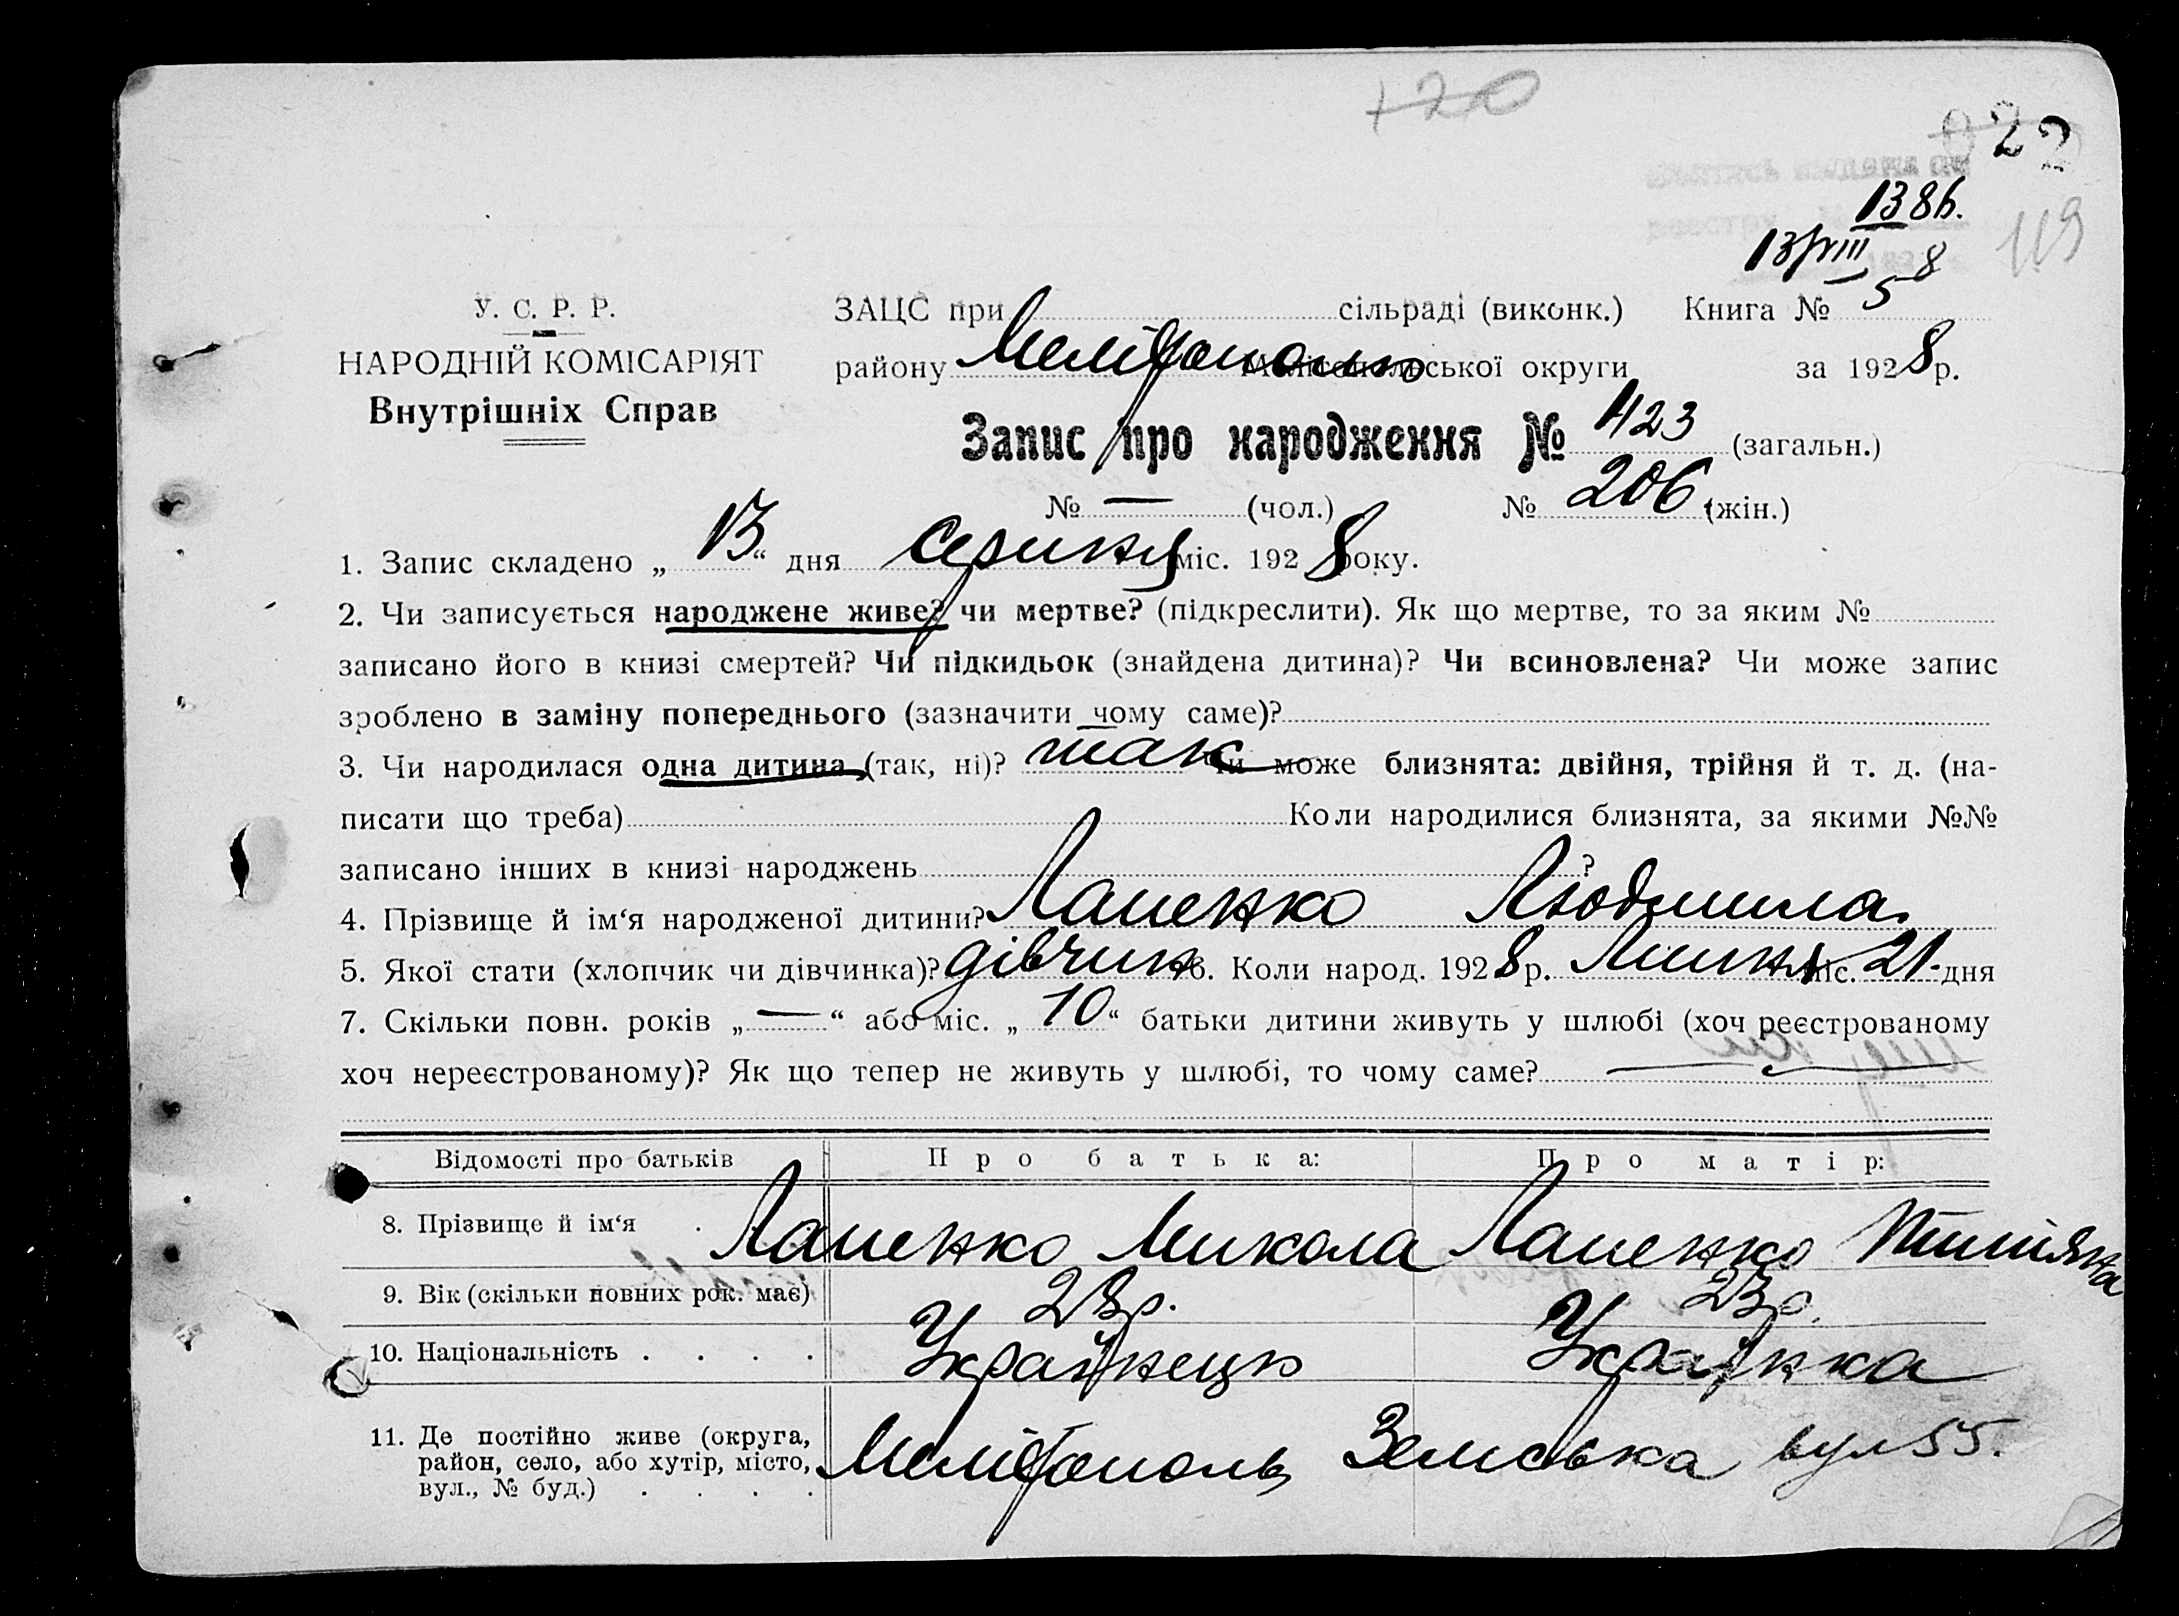 +20
022
1386.
13/VIII 8
119
У. С. Р. Р.
НАРОДНІЙ КОМІСАРІЯТ
Внутрішніх Справ
ЗАЦС при сільраді (виконк.) Книга № 5
району Мелітополю Мелітопольської округи за 1928 р.
Запис про народження № 423 (загальн.)
№ — (чол.) № 206 (жін.)
1. Запис складено „13“ дня Серпня міс. 1928 року.
2. Чи записується народжене живе? чи мертве? (підкреслити). Як що мертве, то за яким №
записано його в книзі смертей? Чи підкидьок (знайдена дитина)? Чи всиновлена? Чи може запис
зроблено в заміну попереднього (зазначити чому саме)?
3. Чи народилася одна дитина (так, ні)? так Чи може близнята: двійня, трійня й т. д. (на-
писати що треба) Коли народилися близнята, за якими №№
записано інших в книзі народжень ?
4. Прізвище й ім‘я народженої дитини? Лапенко Людмила
5. Якої стати (хлопчик чи дівчинка)? дівчин 6. Коли народ. 1928 р. Липня міс. 21 дня
7. Скільки повн. років „—“ або міс. „10“ батьки дитини живуть у шлюбі (хоч реєстрованому
хоч нереєстрованому)? Як що тепер не живуть у шлюбі, то чому саме? —
Відомості про батьків Про батька: Про матір:
8. Прізвище й ім‘я . Лапенко Микола Лапенко Титяна
9. Вік (скільки повних рок. має) 28р. 23р.
10. Національність . . . . Українець Українка
11. Де постійно живе (округа,
район, село, або хутір, місто, Мелітополь Земська вул 55.
вул., № буд.) . . . .